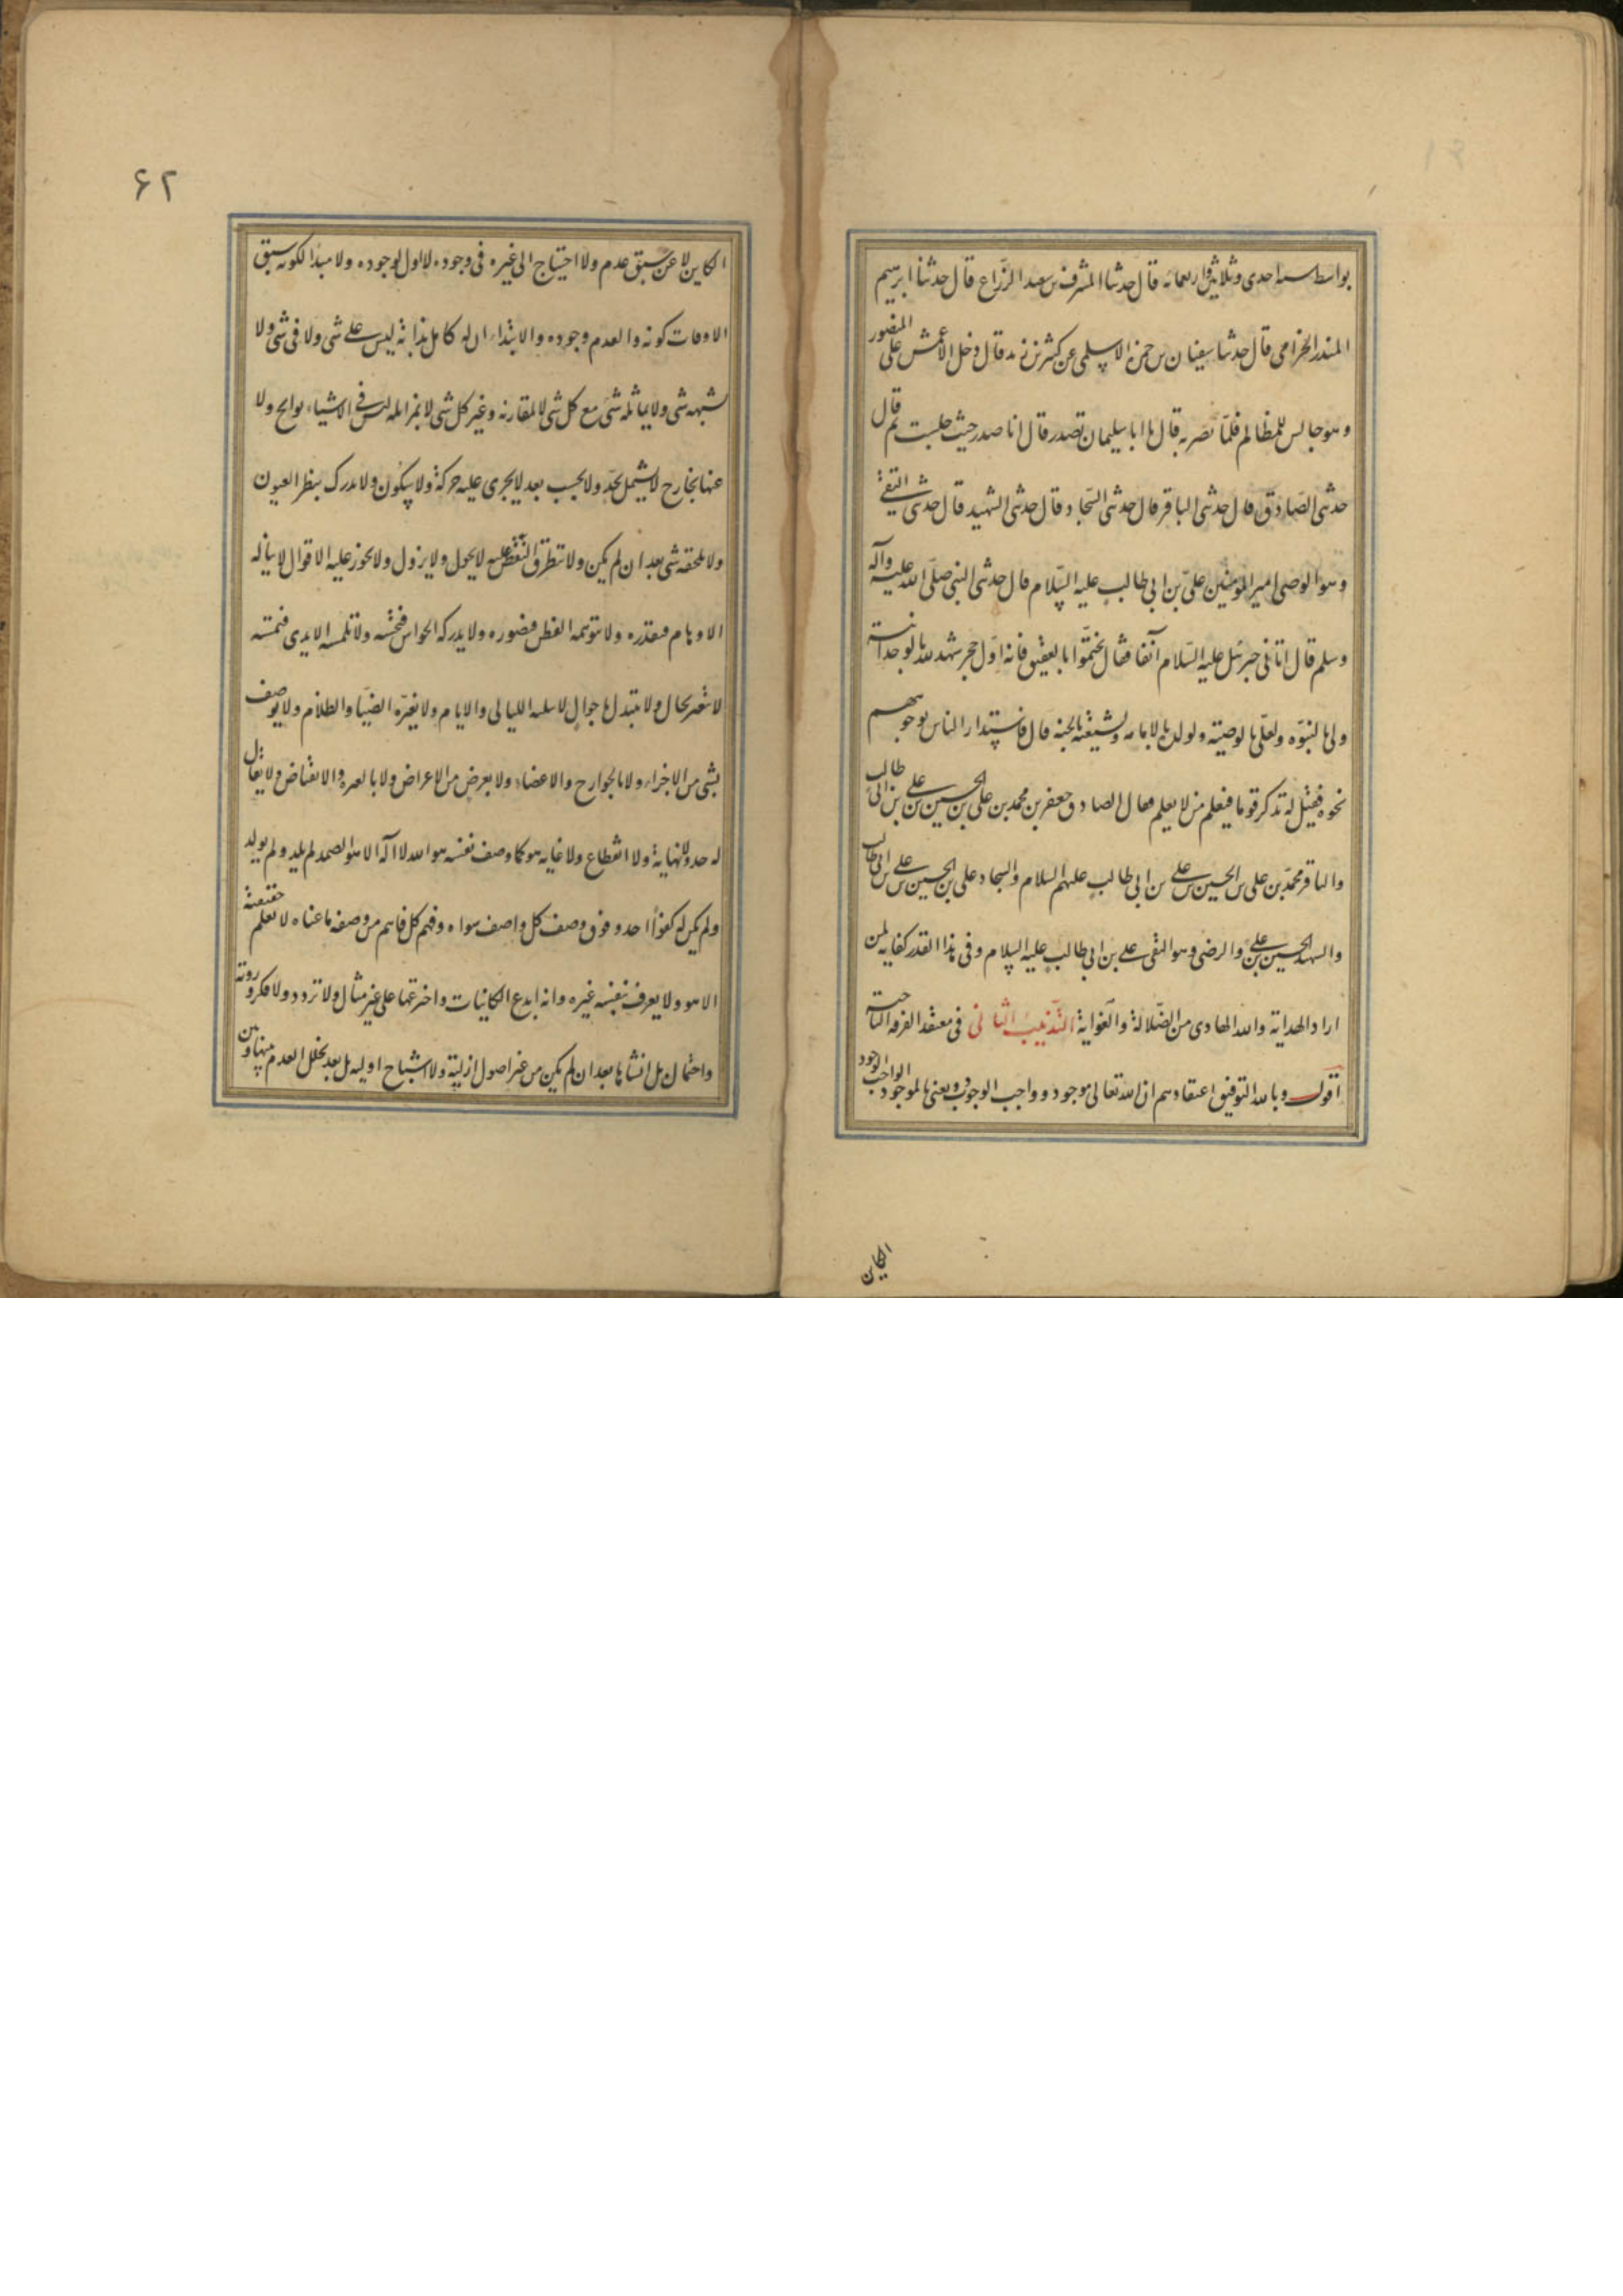 بواسط سنه احدى وثلاثين واربعمائه قال حدثنا المشرف بن سعيد الزراع قال حدثنا ابرهيم
المنذر الحزامى قال حدثنا سفيان بن حمزه الاسلمى عن كثير بن زيد قال دخل الاعمش على المنصور
وهو جالس للمظالم فلمّا بصر به قال يا ابا سليمان تصدر قال انا صدر حيث جلست ثم قال
حدثنى الصّادق قال حدثنى الباقر قال حدثنى السّجاد قال حدثنى الشهيد قال حدثنى التقى
وهو الوصى امير المومنين علىّ بن ابى طالب عليه السّلام قال حدثنى النبى صلّى الله عليه وآله
وسلم قال اتانى جبرئيل عليه السّلام آنفا فقال تختّموا بالعقيق فانه اوّل حجر شهد لله بالوحدانية
ولى بالنبوّه ولعلّى بالوصيّه ولولده بالامامه ولشيعته بالجنه قال فاستدار الناس بوجوههم
نحوه فقيل له تذكر قوما فيعلم من لا يعلم فقال الصادق جعفر بن محمد بن على بن الحسين بن على بن ابى طالب
والباقر محمّد بن على بن الحسين بن على بن ابى طالب عليهم السلام والسجاد على بن الحسين بن على بن ابى طالب
والشهيد الحسين بن على والرضى وهو التقى على بن ابى طالب عليه السلام وفى هذا القدر كفايه لمن
اراد الهداية والله الهادى من الضّلالة والغواية التّذنيب الثانى فى معتقد الفرقه الناجية
اقول وبالله التوفيق اعتقادهم ان الله تعالى موجود وواجب الوجود ويعنى بالموجود الواجب الوجود
الكاين
۶۲
الكاين لا عن سبق عدم ولا احتياج الى غيره فى وجوده لا اول لوجوده ولا مبدا لكونه سبق
الاوقات كونه والعدم وجوده والابتداء ازله كامل بذاته ليس على شى ولا فى شى ولا
يشبهه شى ولا يماثله شى مع كل شى لا بمقارنه وغير كل شى لا بمزايله ليس فى الاشياء بوالج ولا
عنها بخارج لا يشمل بحدّ ولا يحسب بعد لا يجرى عليه حركة ولا سكون ولا يدرك بنظر العيون
ولا يلحقه شى بعد ان لم يكن ولا تتطرق النقص عليه لا يحول ولا يزول ولا يجوز عليه الافول لا يناله
الاوهام فتقدره ولا تتوهمه الفطن فتصوره ولا يدركه الحواس فتحسّه ولا تلمسه الايدى فتمسّه
لا يتغير بحال ولا يتبدل باحوال لا تبليه الليالى والايام ولا يغيّره الضيّا والظلام ولا يوصف
بشى من الاجزاء ولا بالجوارح والاعضاء ولا بعرض من الاعراض ولا بالغيريه والابعاض ولا يقال
له حد ولا نهاية ولا انقطاع ولا غايه هو كما وصف نفسه هو الله لا اله الا هو الصمد لم يلد ولم يولد
ولم يكن له كفوًا احد وفوق وصف كل واصف سواه وفهم كل فاهم من وصفه ما عناه لا تعلم حقيقته
الا هو ولا يعرف بنفسه غيره وانه ابدع الكاينات واخترعها على غير مثال ولا تردد ولا فكر وروية
واحتمال بل انشاها بعد ان لم يكن من غير اصول ازلية ولا اشباح اوليه بل بعد تخلل العدم بينها وبين